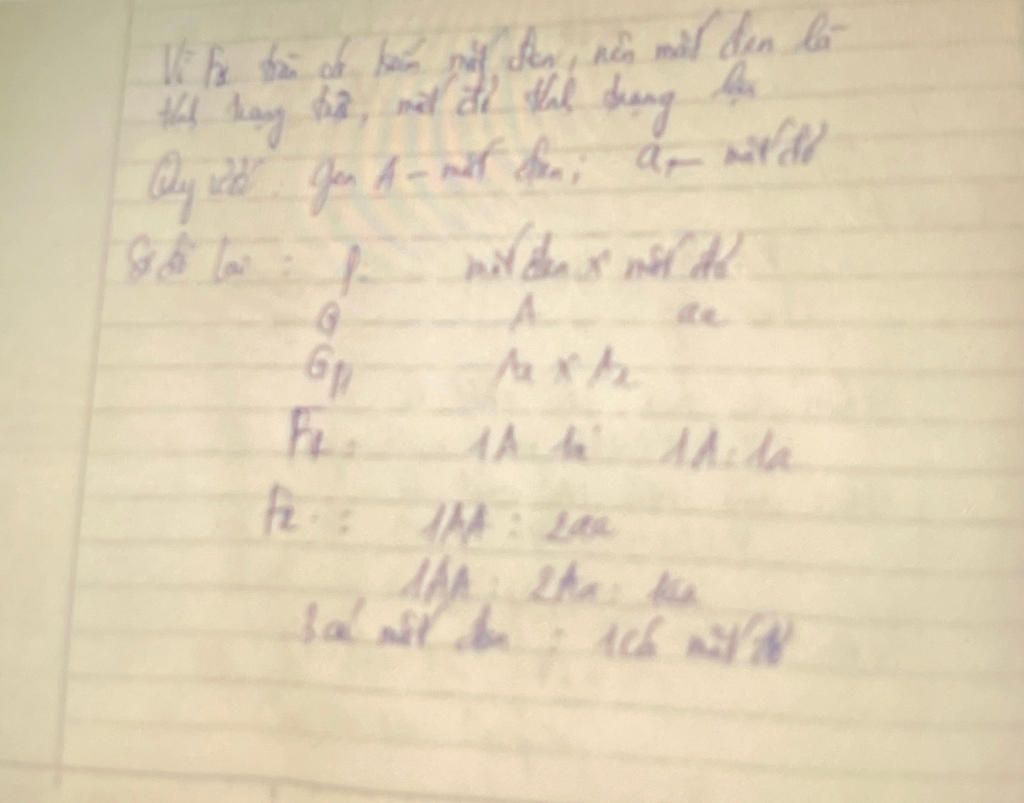 Vì F1 toàn cá kiếm mắt đen, nên mắt đen là
tính trạng trội, mắt đỏ tính trạng lặn
Quy ước: gen A - mắt đen; a - mắt đỏ
Sơ đồ lai: P mắt đen x mắt đỏ
G A aa
Gp Aa x Aa
F1: 1A 1a 1A : 1a
F2: 1AA : 2aa
1AA : 2Aa : 1aa
3 cá mắt đen : 1 cá mắt đỏ